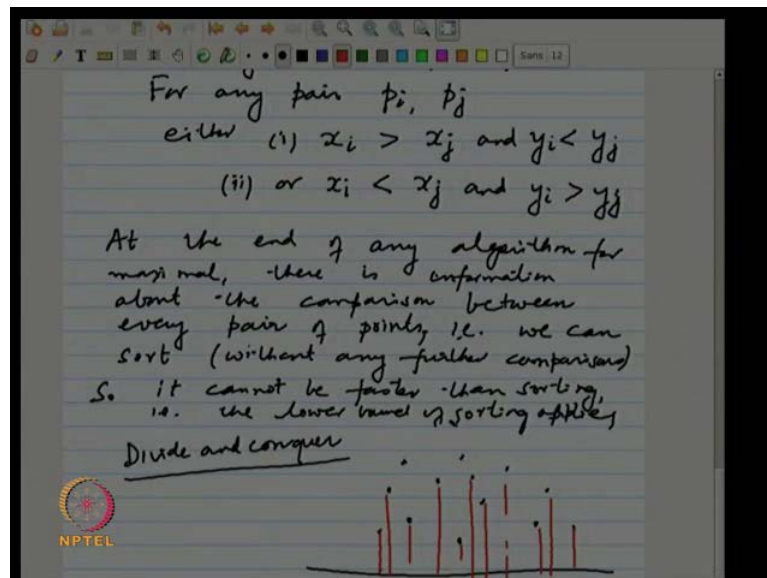 Sans 12
For any pair pi, pj
either (i) xi > xj and yi < yj
(ii) or xi < xj and yi > yj
At the end of any algorithm for
maximal, there is information
about the comparison between
every pair of points, i.e. we can
sort (without any further comparisons)
So it cannot be faster than sorting,
i.e. the lower bound of sorting applies
Divide and conquer
NPTEL